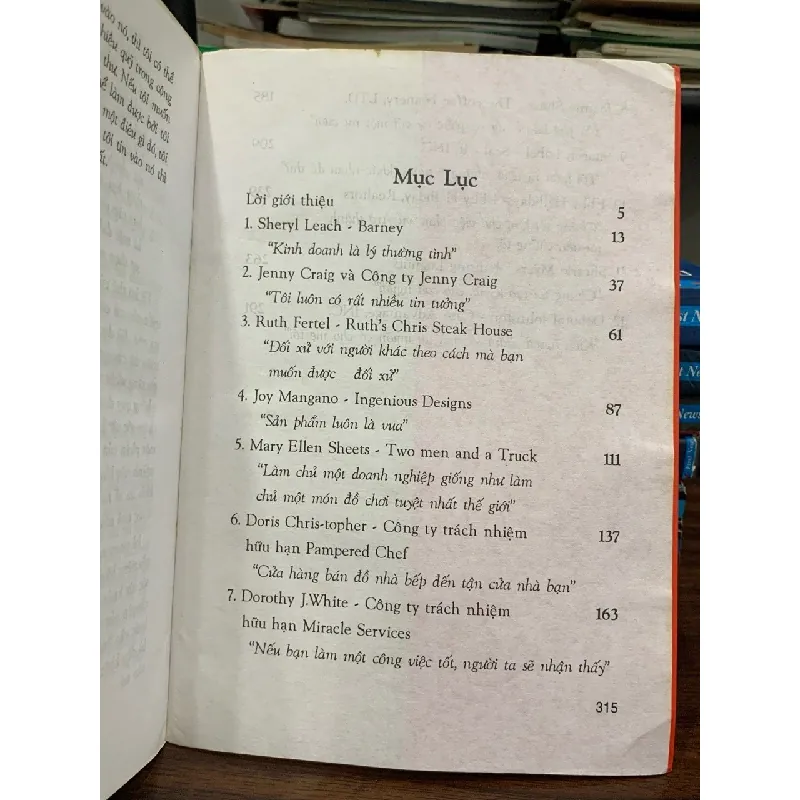 vào nó, thì tôi có thể
nhiêu quỹ trong công
thư. Nếu tôi muốn
làm được bởi tôi
một điều gì đó, tôi
tôi tin vào nó thì
ất.
Mục Lục
Lời giới thiệu 5
1. Sheryl Leach - Barney 13
“Kinh doanh là lý thường tình”
2. Jenny Craig và Công ty Jenny Craig 37
“Tôi luôn có rất nhiều tin tưởng”
3. Ruth Fertel - Ruth's Chris Steak House 61
“Đối xử với người khác theo cách mà bạn
muốn được đối xử”
4. Joy Mangano - Ingenious Designs 87
“Sản phẩm luôn là vua”
5. Mary Ellen Sheets - Two men and a Truck 111
“Làm chủ một doanh nghiệp giống như làm
chủ một món đồ chơi tuyệt nhất thế giới”
6. Doris Chris-topher - Công ty trách nhiệm 137
hữu hạn Pampered Chef
“Cửa hàng bán đồ nhà bếp đến tận cửa nhà bạn”
7. Dorothy J.White - Công ty trách nhiệm 163
hữu hạn Miracle Services
“Nếu bạn làm một công việc tốt, người ta sẽ nhận thấy”
315